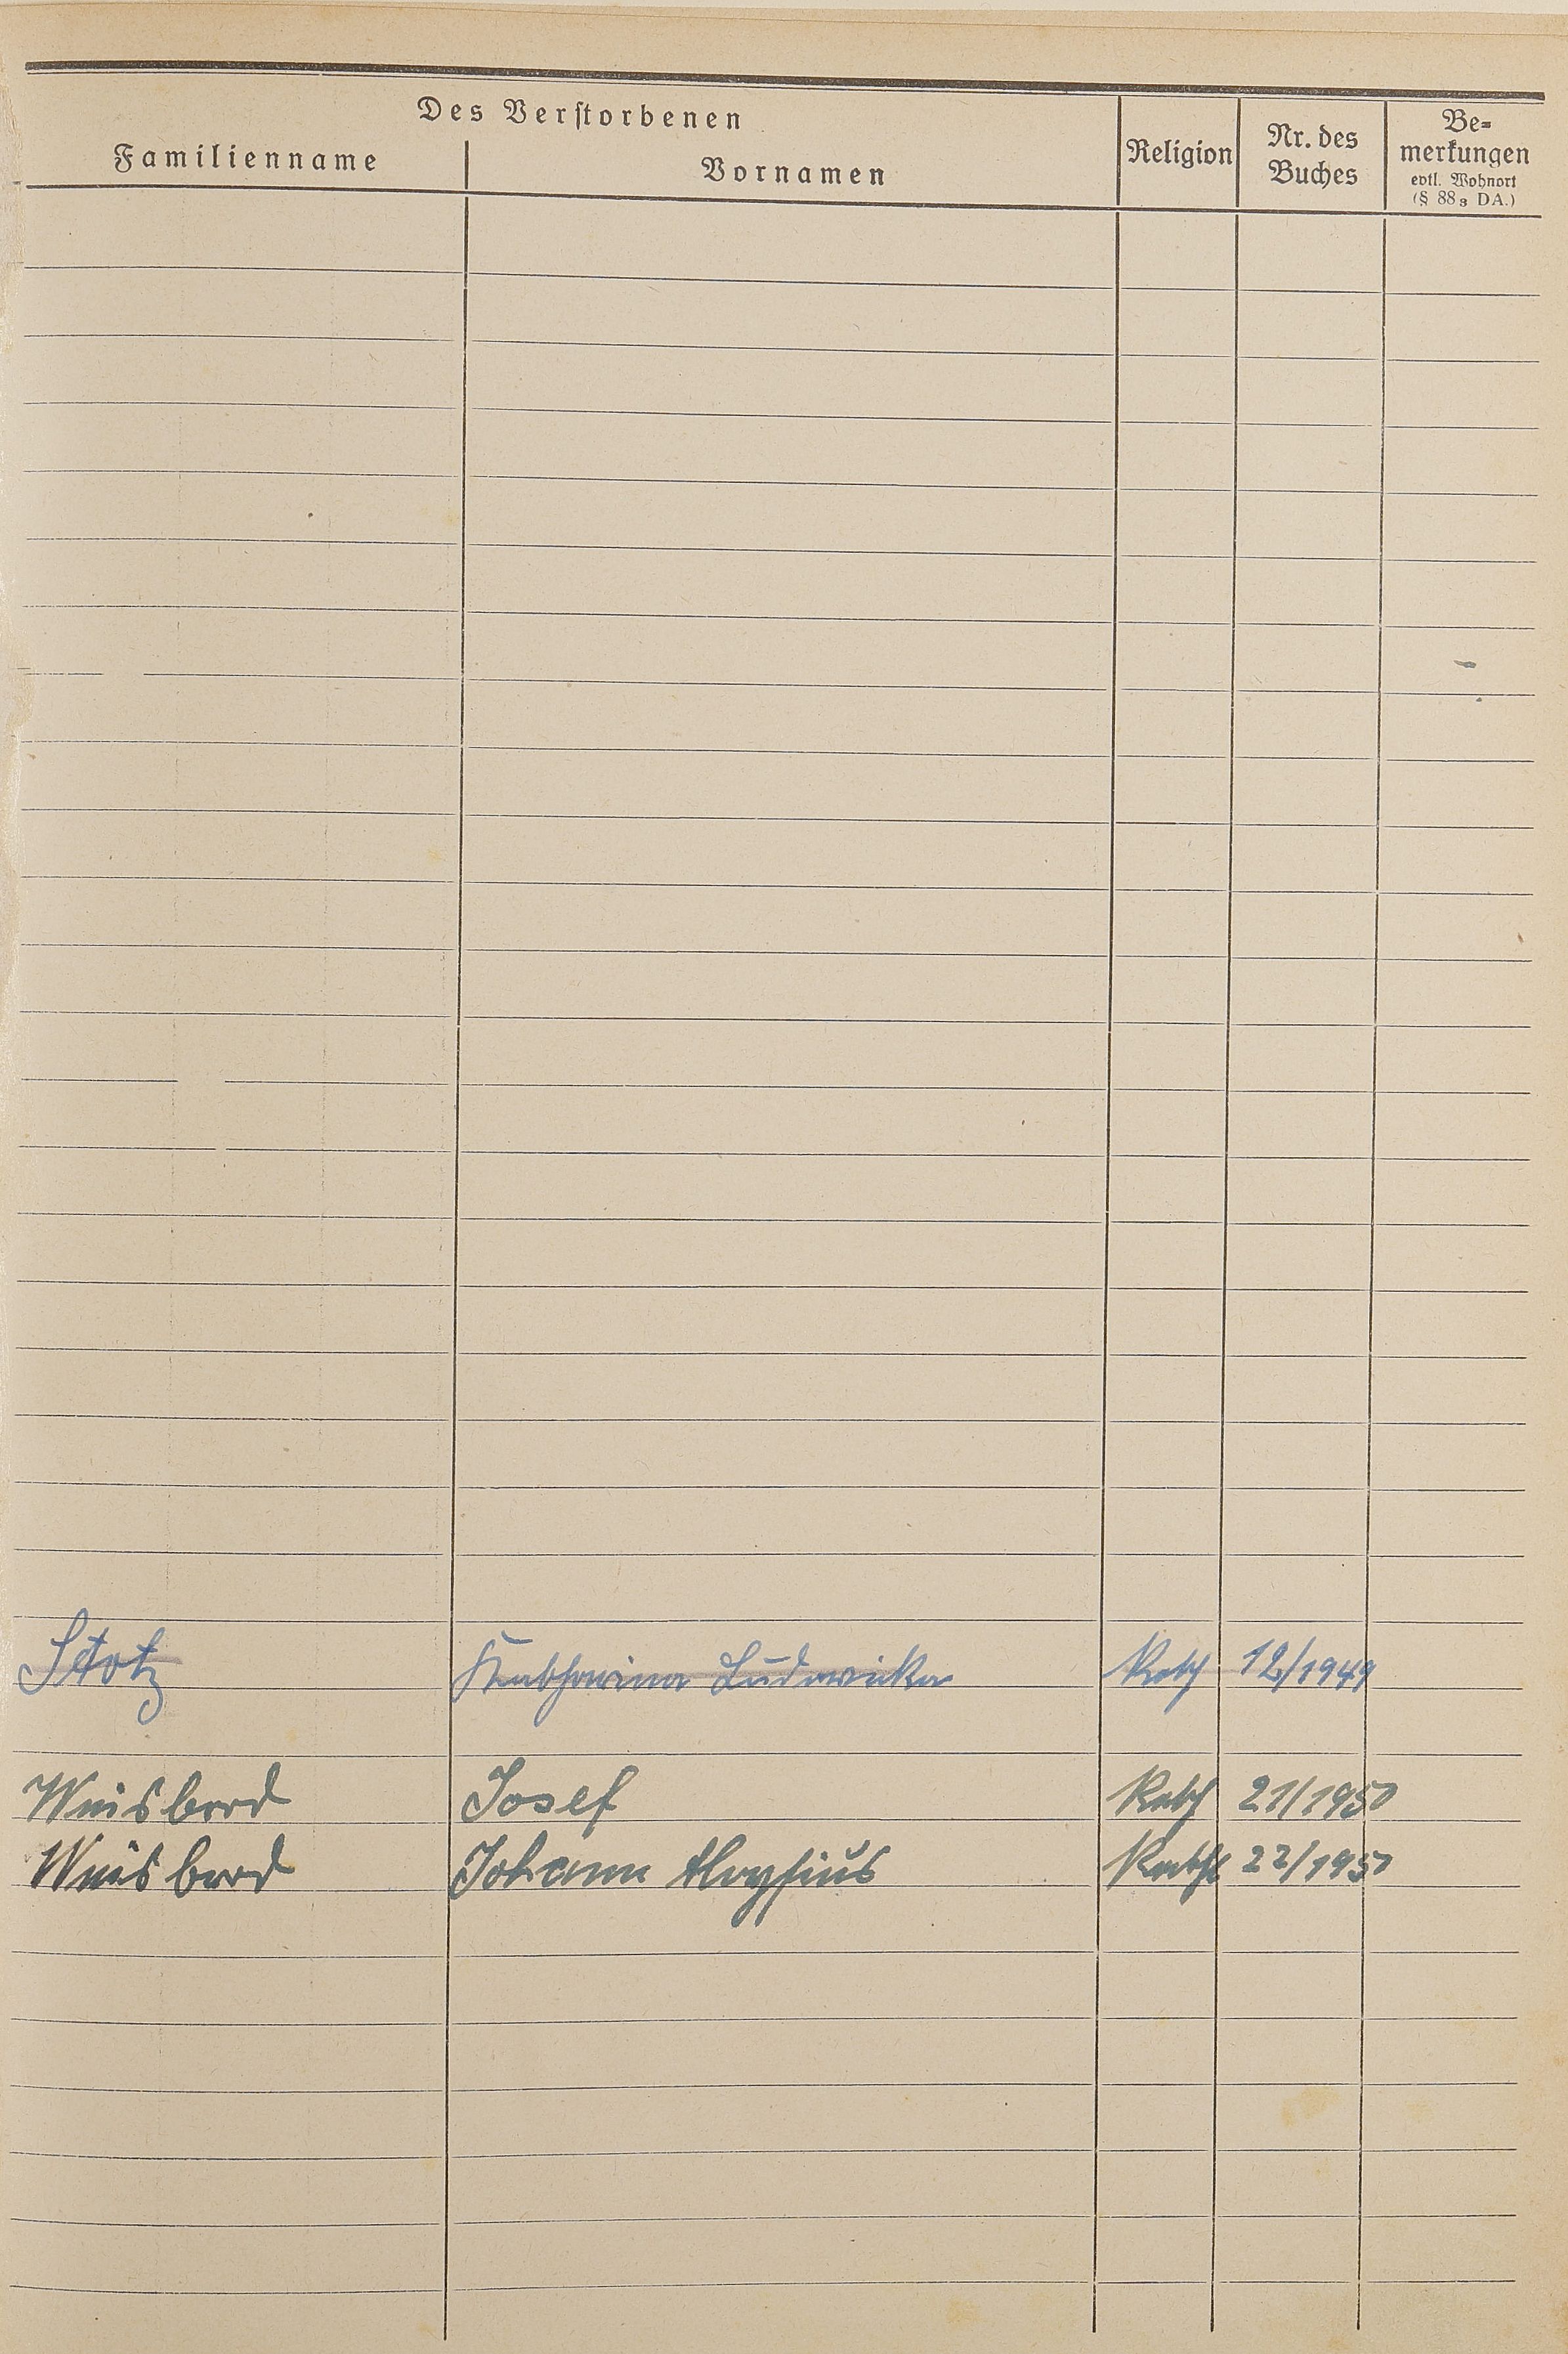 Des Verstorbenen
Familienname
Vornamen
Religion
Nr. des
Buches
Be-
merkungen
evtl. Wohnort
(§ 88₃ DA.)
Stotz Katharina Ludowika Kath 12/1949
Weisbrod Josef Kath 21/1950
Weisbrod Johann Aloysius Kathl 22/1950